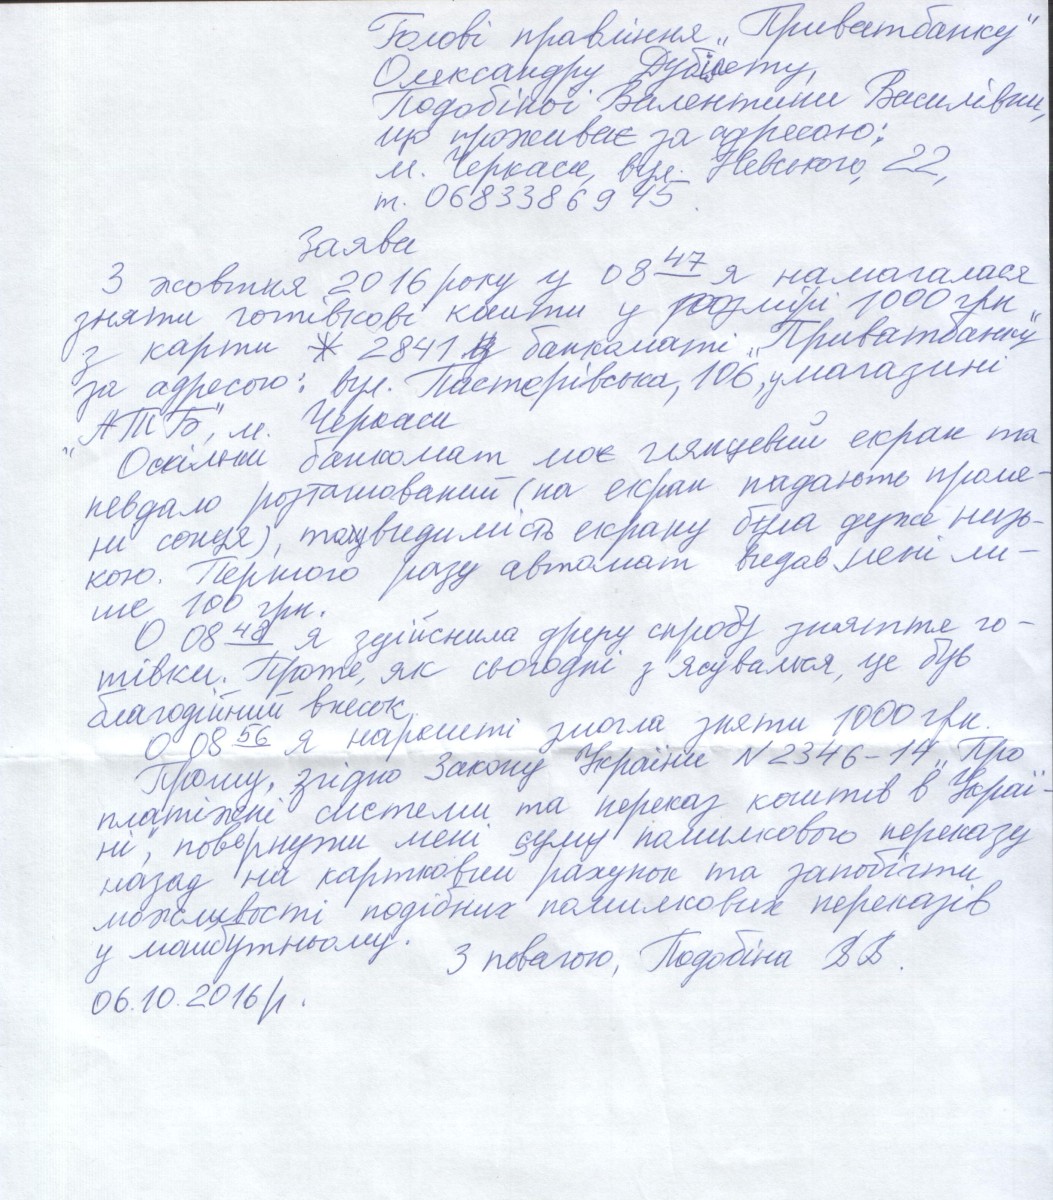 Голові правління „Приватбанку"
Олександру Дубілету,
Подобіної Валентини Василівни,
що проживає за адресою:
м. Черкаси, вул. Невського, 22,
т. 0683386945.
Заява
3 жовтня 2016 року у 08 47 я намагалася
зняти готівкові кошти у розмірі 1000 грн
з карти * 2841 в банкоматі „Приватбанку"
за адресою: вул. Пасторівська, 106, у магазині
„АТБ", м. Черкаси
Оскільки банкомат має глянцевий екран та
невдало розташований (на екран падають проме-
ні сонця), то видимість екрану була дуже низь-
кою. Першого разу автомат видав мені ли-
ше 100 грн.
О 08 48 я здійснила другу спробу зняття го-
тівки. Проте, як сьогодні з'ясувалося, це був
благодійний внесок.
О 08 56 я нарешті змогла зняти 1000 грн.
Прошу, згідно Закону України N 2346-14 „Про
платіжні системи та переказ коштів в Украї-
ні", повернути мені суму помилкового переказу
назад на картковий рахунок та запобігти
можливості подібних помилкових переказів
у майбутньому.
З повагою, Подобіна В.В.
06.10.2016 р.